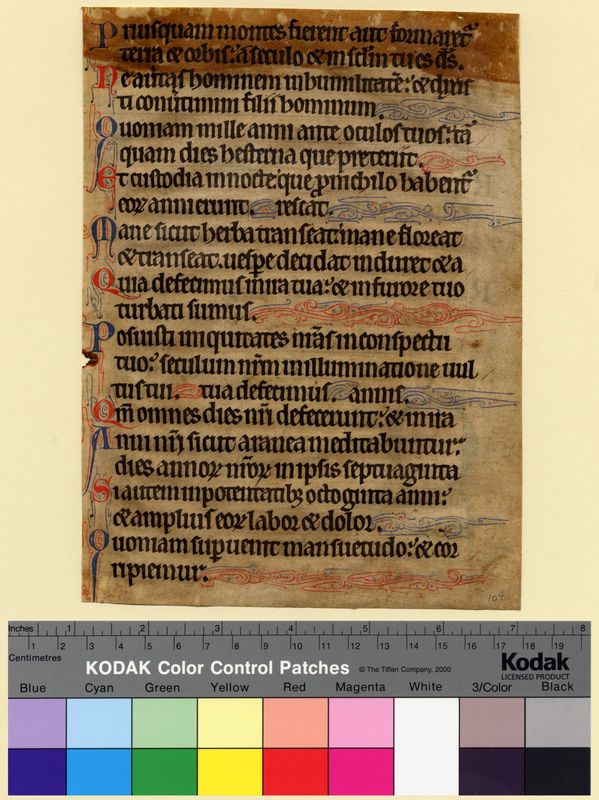 Priusquam montes fierent aut formaretr̄
terra & orbis: a seculo & in sc̄lm tu es d̄s.
Ne auertas hominem in humilitatē: & dixis
ti conuertimini filii hominum.
Quoniam mille anni ante oculos tuos: tā
quam dies hesterna que preteriit.
Et custodia in nocte: que p nichilo habent̄
eoꝝ anni erunt. rescāt.
Mane sicut herba transeat: mane floreat
& transeat. uespe decidat induret & a
Quia defecimus in ira tua: & in furore tuo
turbati sumus.
Posuisti iniquitates nr̄as in conspectu
tuo: seculum nr̄m in illuminatione uul
tus tui. tua defecimus. annis.
Qm̄ omnes dies nr̄i defecerunt: & in ira
Anni nr̄i sicut aranea meditabuntur:
dies annoꝝ nr̄oꝝ in ipsis septuaginta
Si autem in potentatibꝫ octoginta anni:
& amplius eoꝝ labor & dolor.
Quoniam supuenit mansuetudo: & cor
ripiemur.
104
Inches 1 2 3 4 5 6 7 8
1 2 3 4 5 6 7 8 9 10 11 12 13 14 15 16 17 18 19
Centimetres
KODAK Color Control Patches © The Tiffen Company, 2000 Kodak
LICENSED PRODUCT
Blue Cyan Green Yellow Red Magenta White 3/Color Black